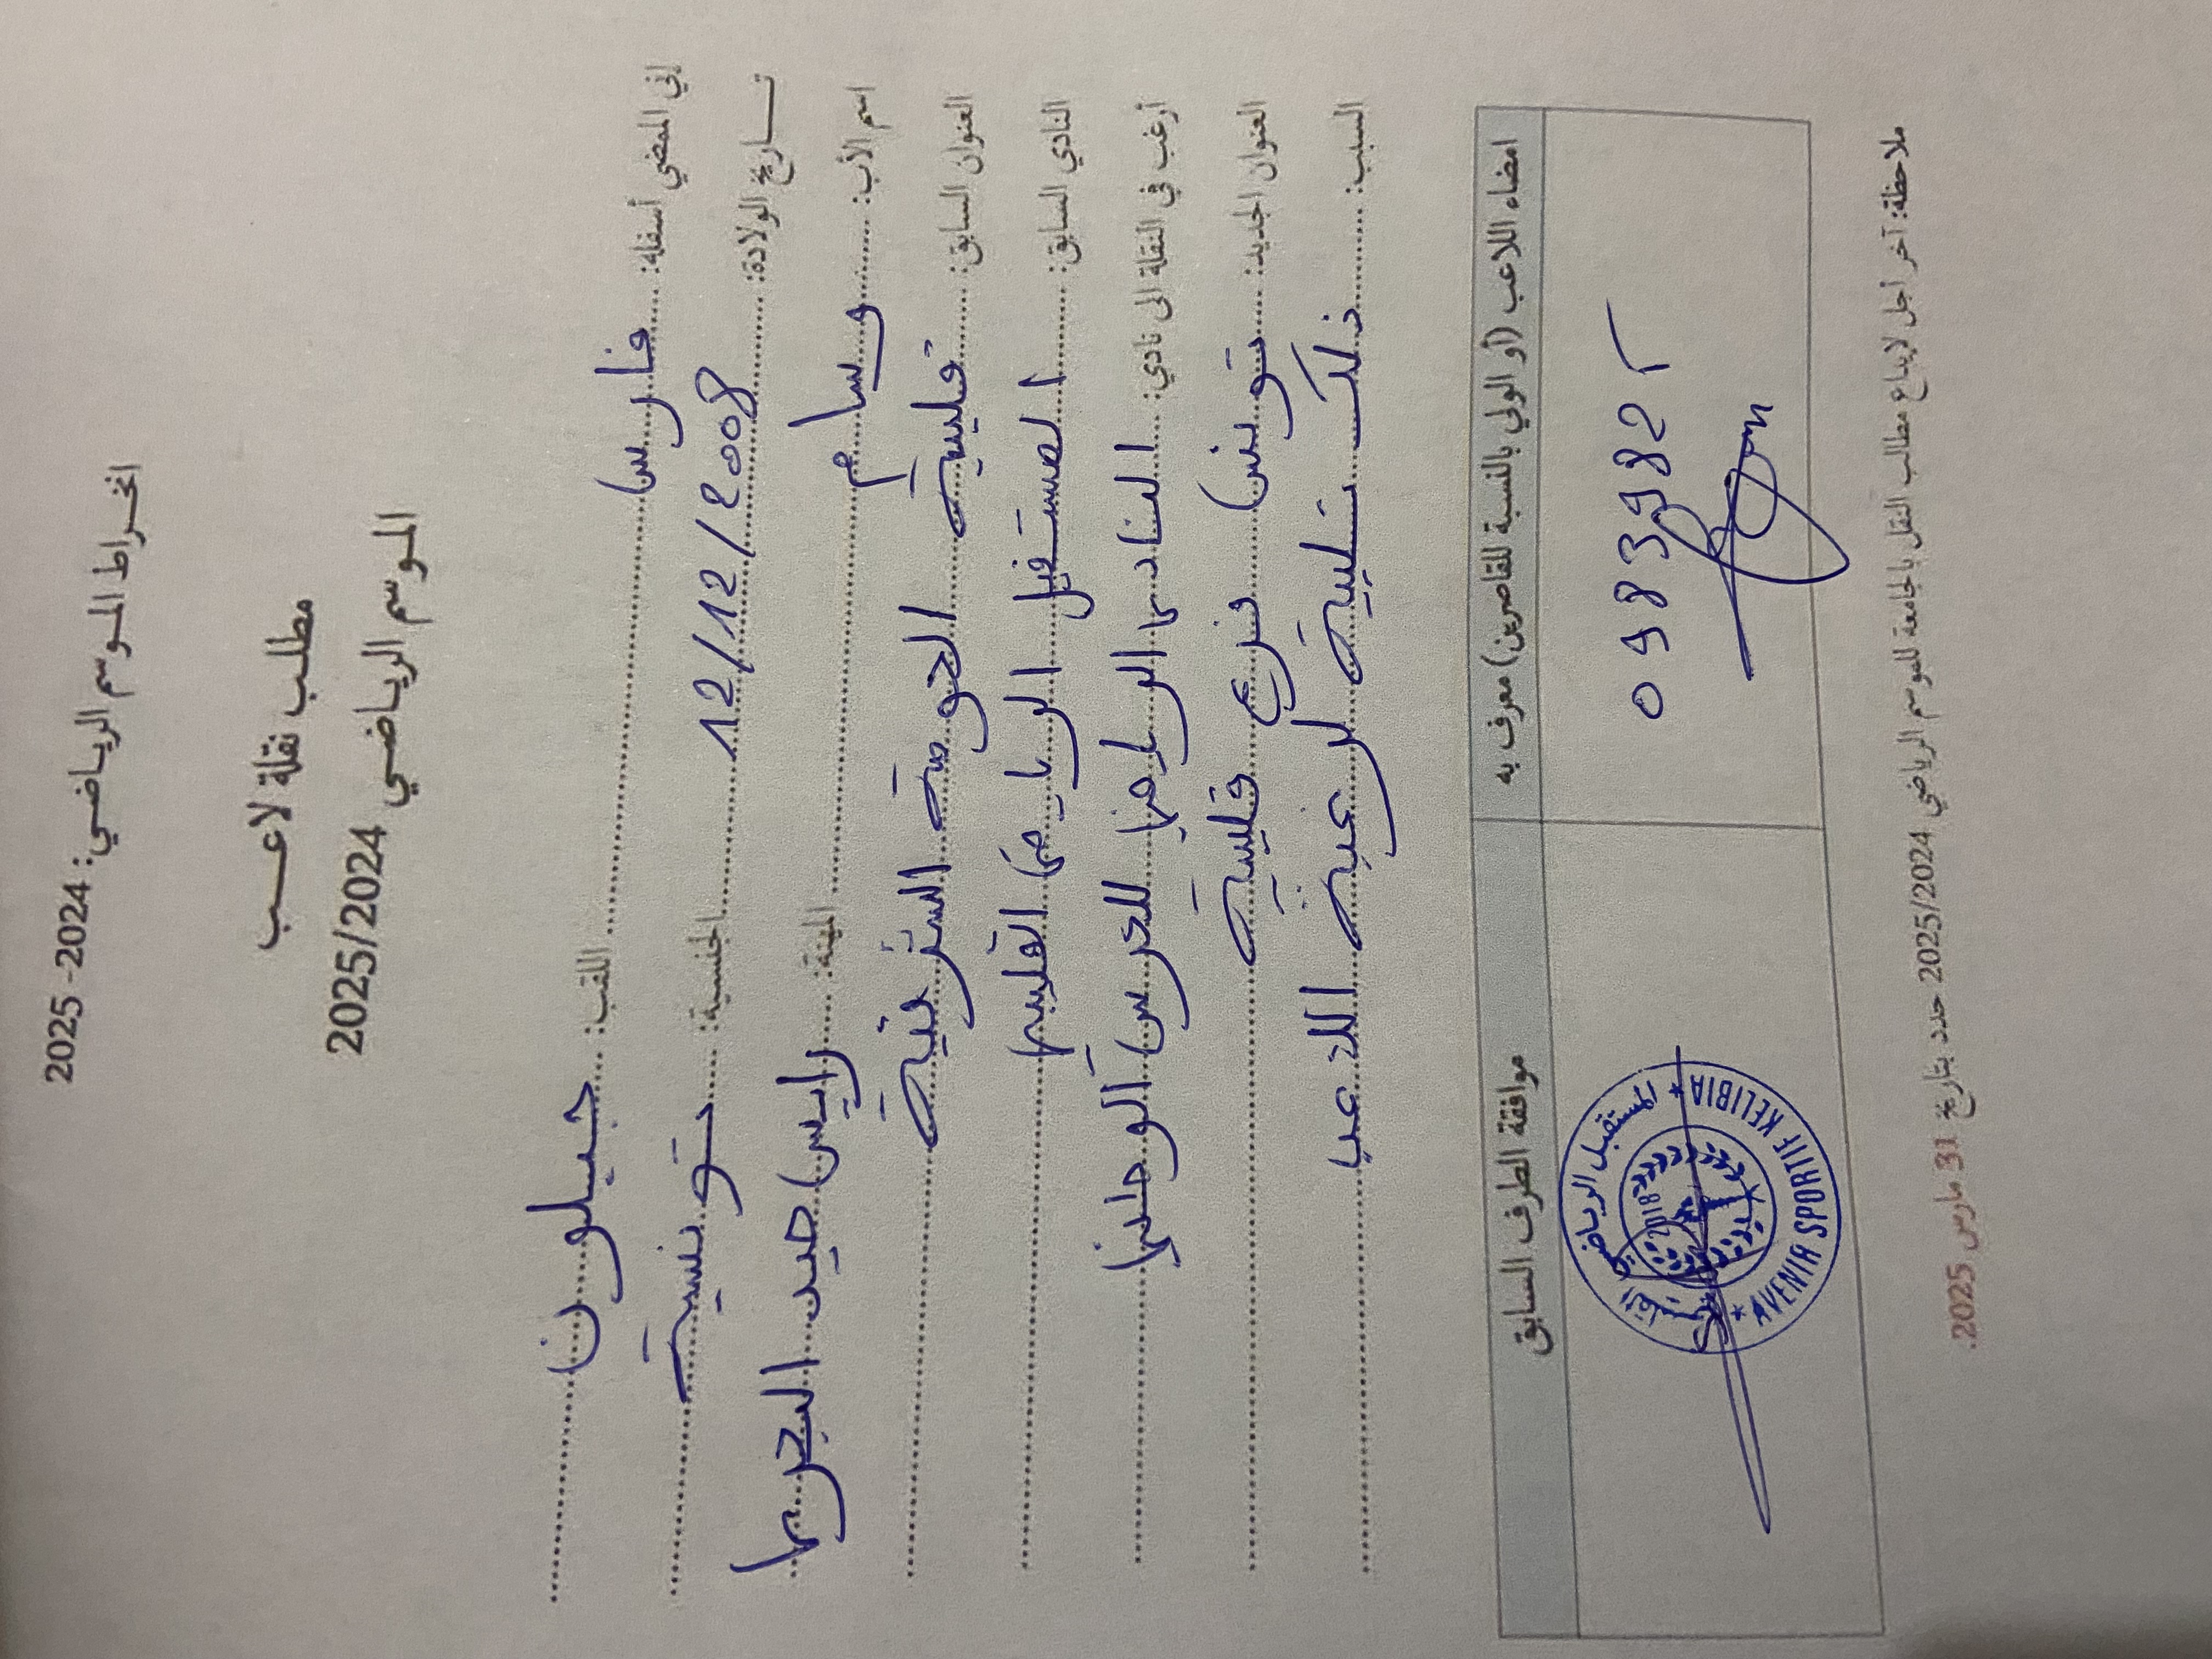 انخراط الموسم الرياضي: 2024- 2025
مطلب نقلة لاعب
الموسم الرياضي 2025/2024
إني الممضي أسفله: فارس اللقب: جبلون
تاريخ الولادة: 12/12/2008 الجنسية: تونسية
اسم الأب: وسام المهنة: رايس صيد البحري
العنوان السابق: قليبية الحومة الشرقية
النادي السابق: المستقبل الرياضي القليبي
أرغب في النقلة الى نادي: النادي الرياضي للحرس الوطني
العنوان الجديد: تونس فرع قليبية
السبب: ذلك تلبية لرغبة اللاعب
امضاء اللاعب (أو الولي بالنسبة للقاصرين) معرف به
موافقة الطرف السابق
0983982
المستقبل الرياضي
2018
* AVENIR SPORTIF KELIBIA *
ملاحظة: آخر أجل لإيداع مطالب النقل بالجامعة للموسم الرياضي 2025/2024 حدد بتاريخ 31 مارس 2025.